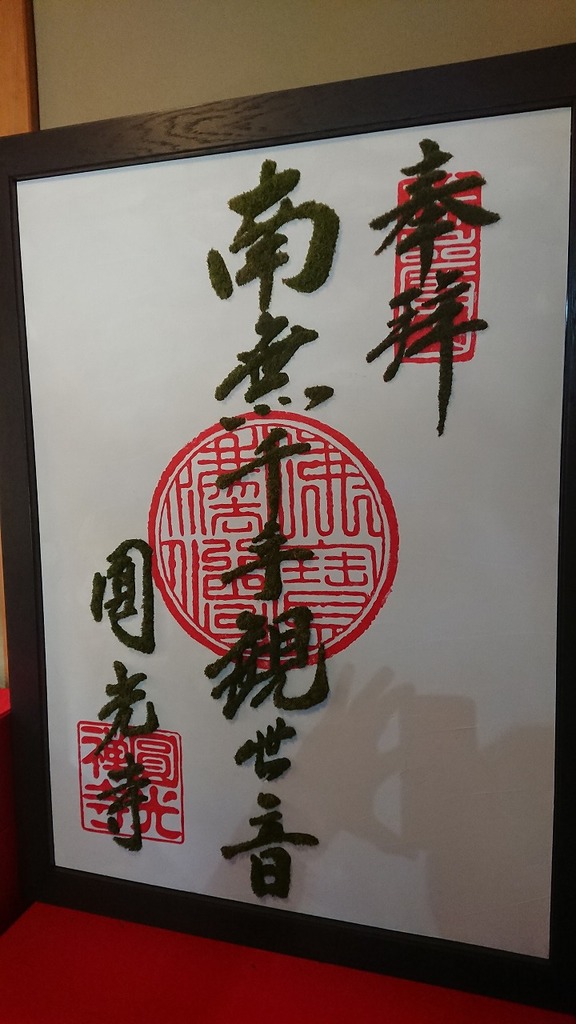 奉拝
南無千手観世音
圓光寺
圓光禅寺